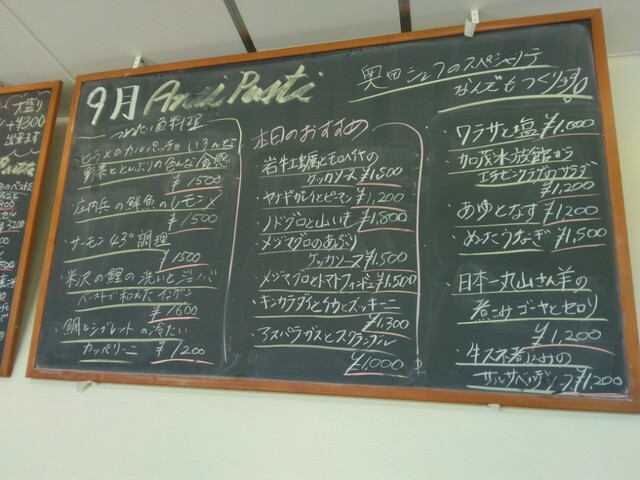 大盛り
+¥300
出来ます
9月 Anti Pasti
奥田シェフのスペシャリテ
なんでもつくります。
つめたい魚料理
・ヒラメのカルパッチョ いろんな
野菜ととんぶりの色んな食感
¥1500
・庄内浜の鮮魚のレモン〆
¥1500
・サーモン 43°調理
¥1500
・米沢の鯉の洗いとジェノバ
ペーストで和えたインゲン
¥1600
・鯛とシブレットの冷たい
カッペリーニ ¥1200
本日のおすすめ
・岩牡蠣とモロヘイヤの
クッカソース ¥1,500
・ヤナギガレイとピーマン ¥1,200
・ノドグロと山いも ¥1,800
・メジマグロのあぶり
ケッカソース ¥1500
・メジマグロとトマトフォンデュ ¥1,500
・キンカラダイとイカとズッキーニ
¥1,300
・アスパラガスとスクランブル
¥1,000
・ワラサと塩 ¥1,000
・加茂水族館から
エチゼンクラゲのサラダ
¥1,200
・あゆとなす ¥1200
・めったうなぎ ¥1,500
・日本一丸山さん羊の
煮こみ ゴーヤとセロリ
¥1,200
・牛スネ煮こみの
サルサベッディソース ¥1,200